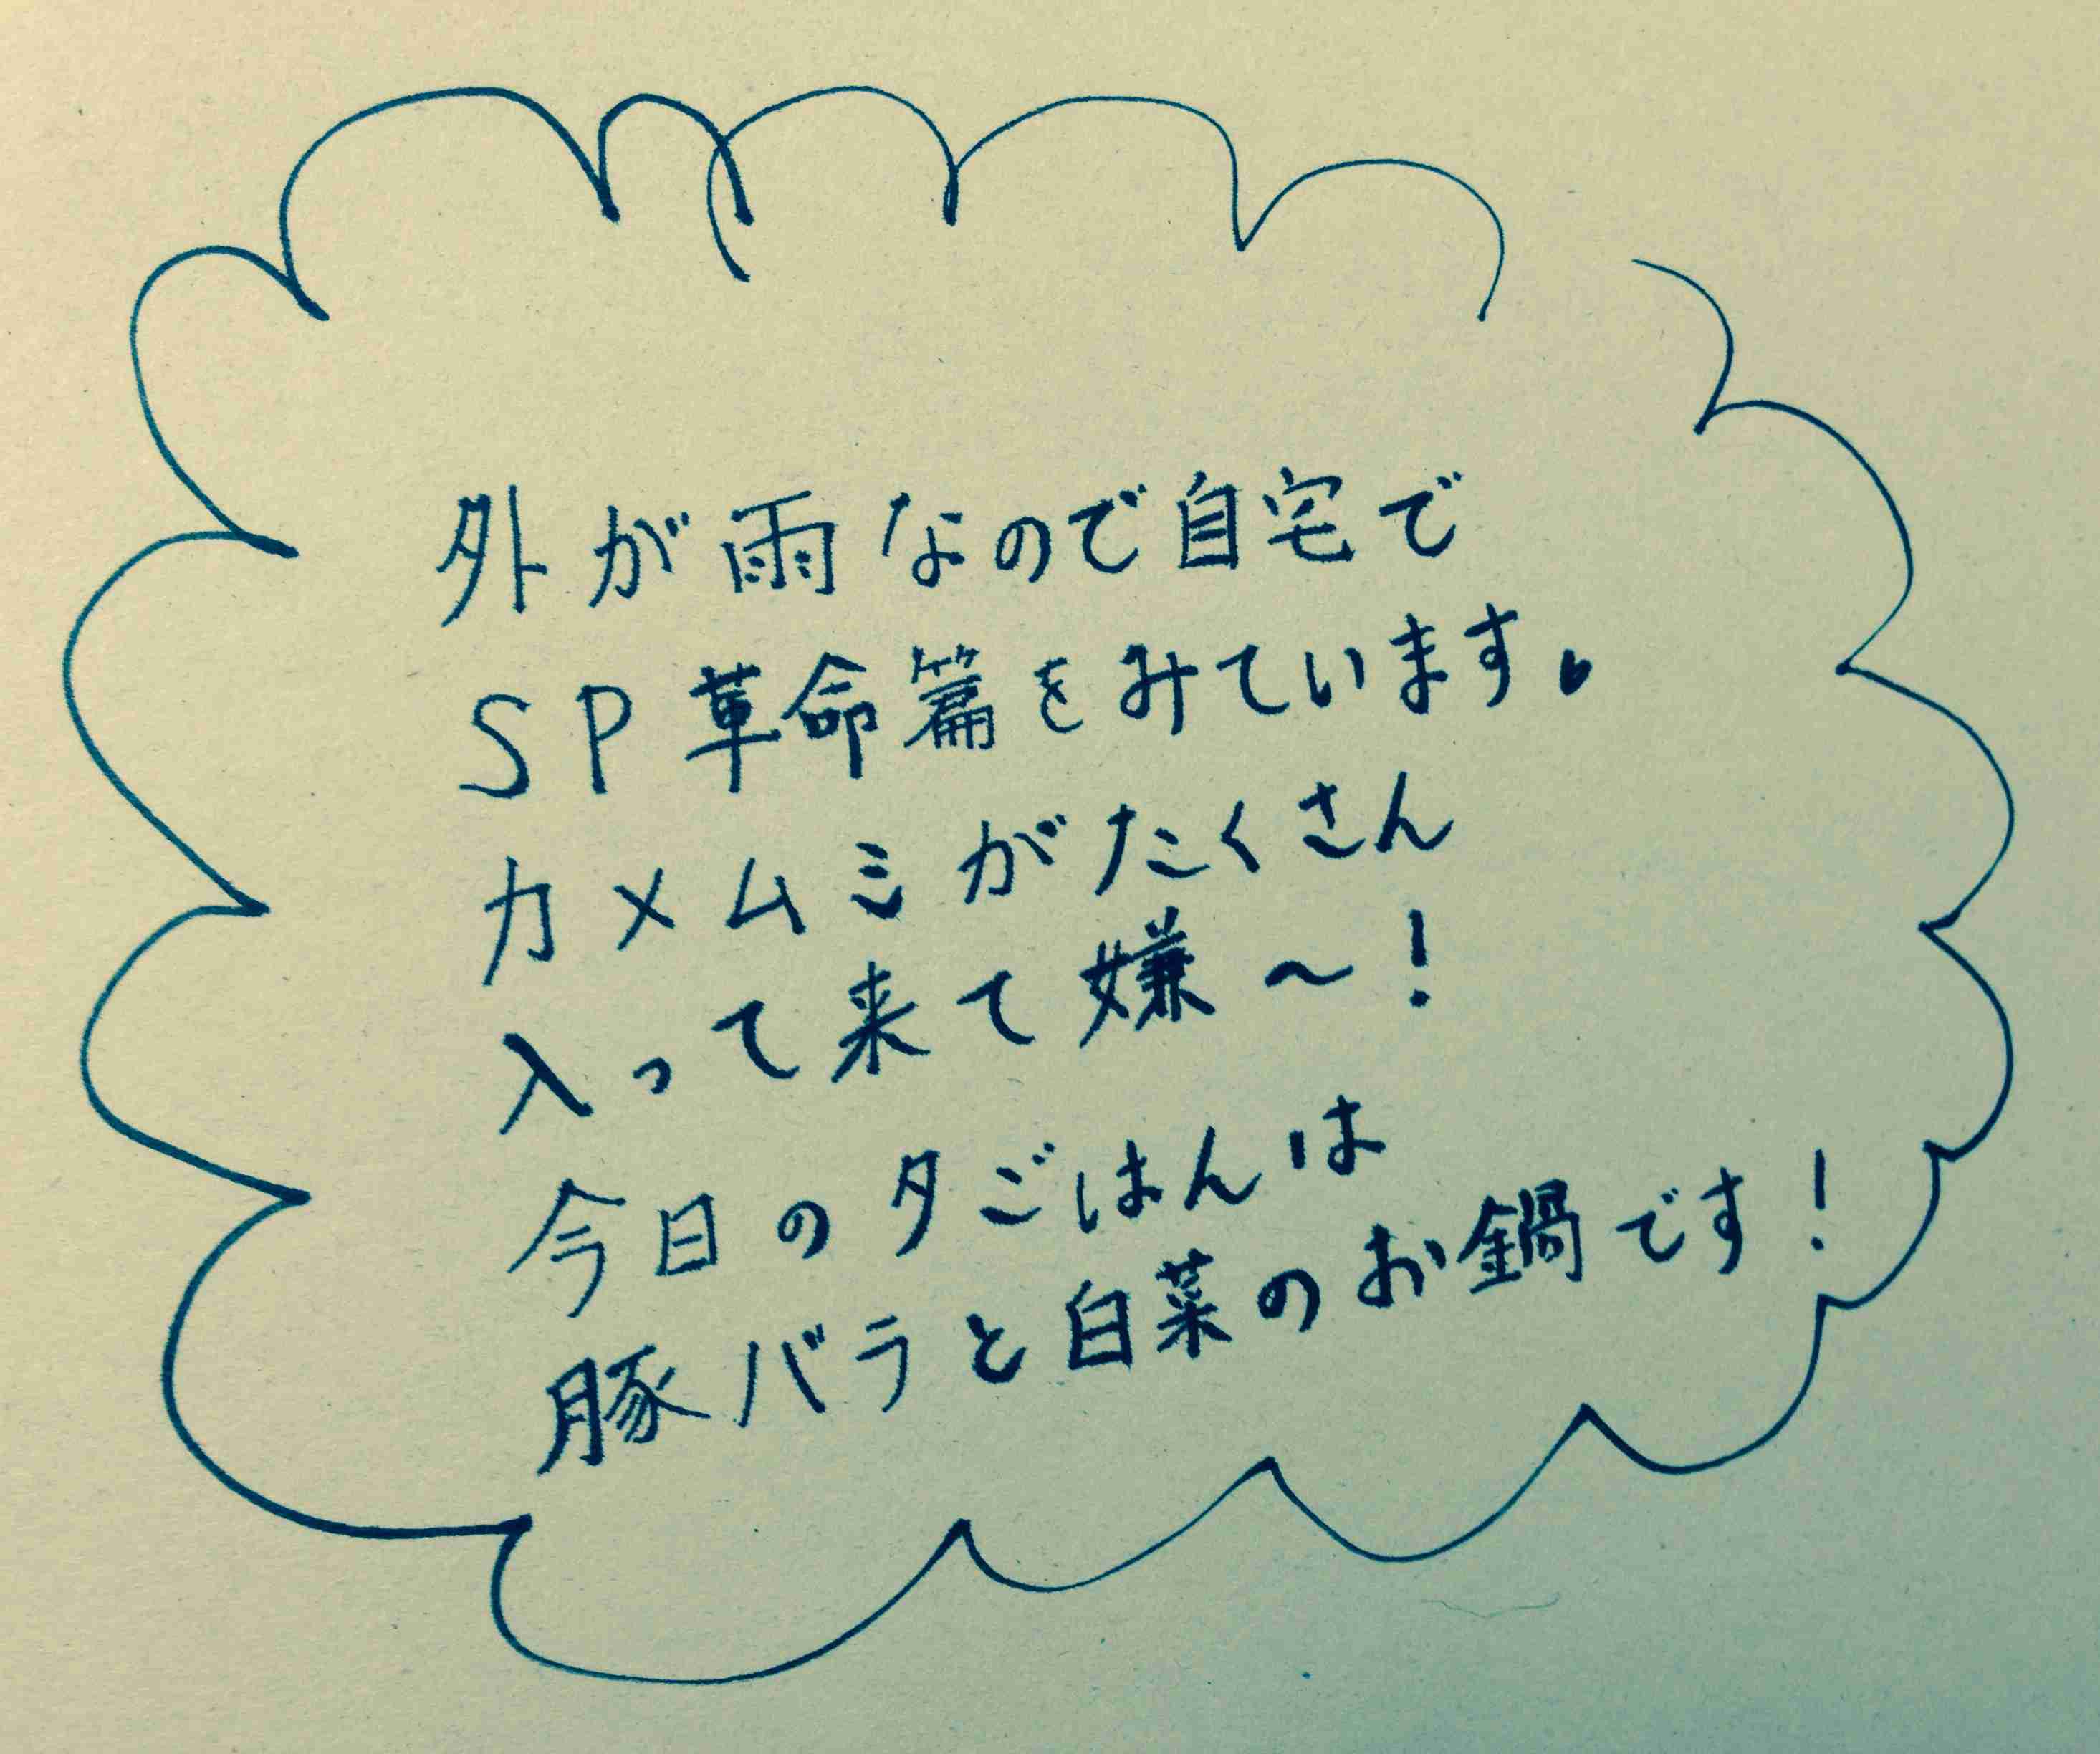 外が雨なので自宅で
SP革命篇をみています。
カメムシがたくさん
入って来て嫌～!
今日の夕ごはんは
豚バラと白菜のお鍋です!